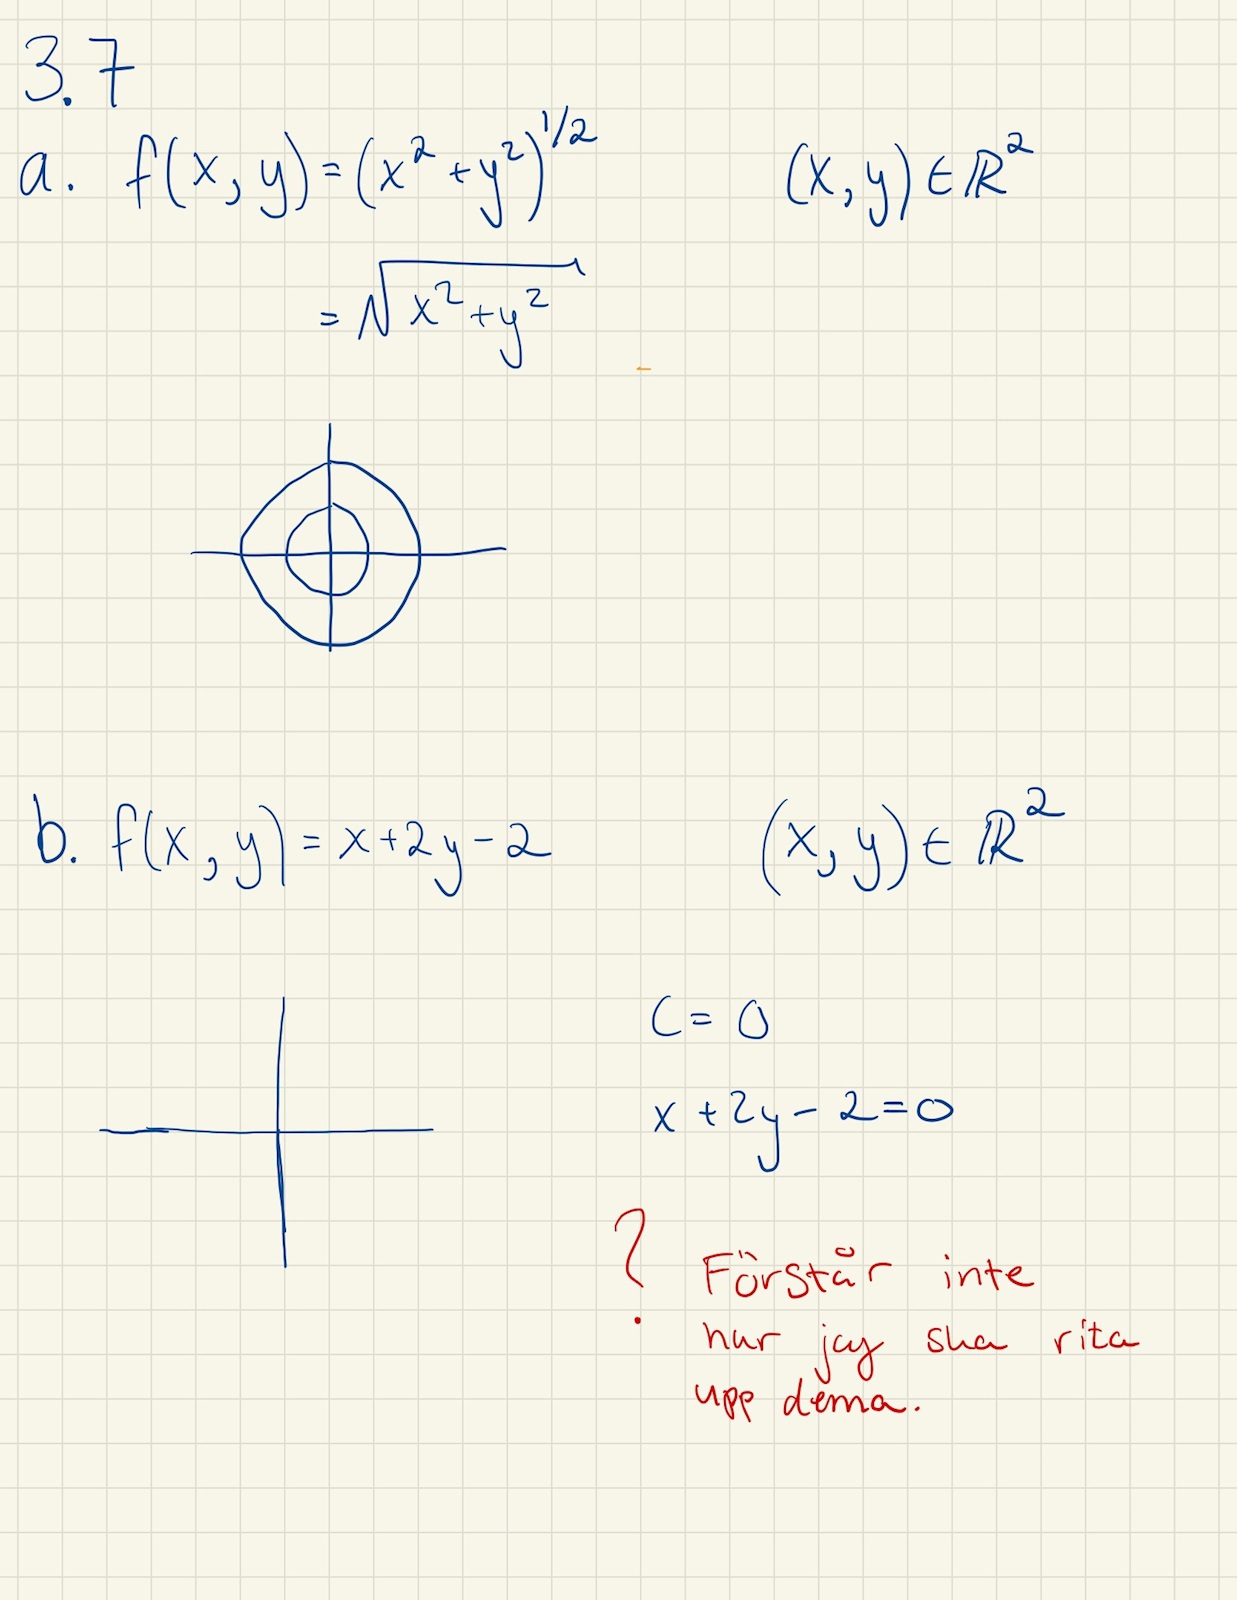 3.7
a. f(x,y)=(x²+y²)^1/2 (x,y)∈ℝ²
=√x²+y²
b. f(x,y)=x+2y-2 (x,y)∈ℝ²
C=0
x+2y-2=0
? Förstår inte
hur jag ska rita
upp denna.